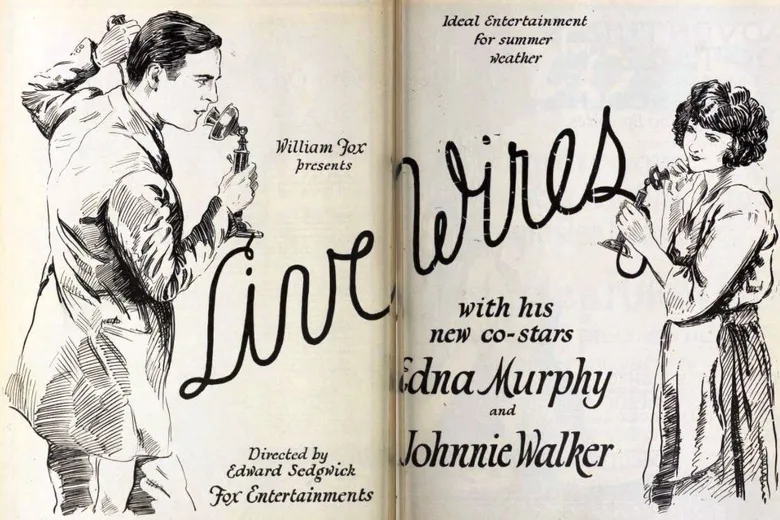 William Fox
presents
Live Wires
Ideal Entertainment
for summer
weather
with his
new co-stars
Edna Murphy
and
Johnnie Walker
Directed by
Edward Sedgwick
Fox Entertainments